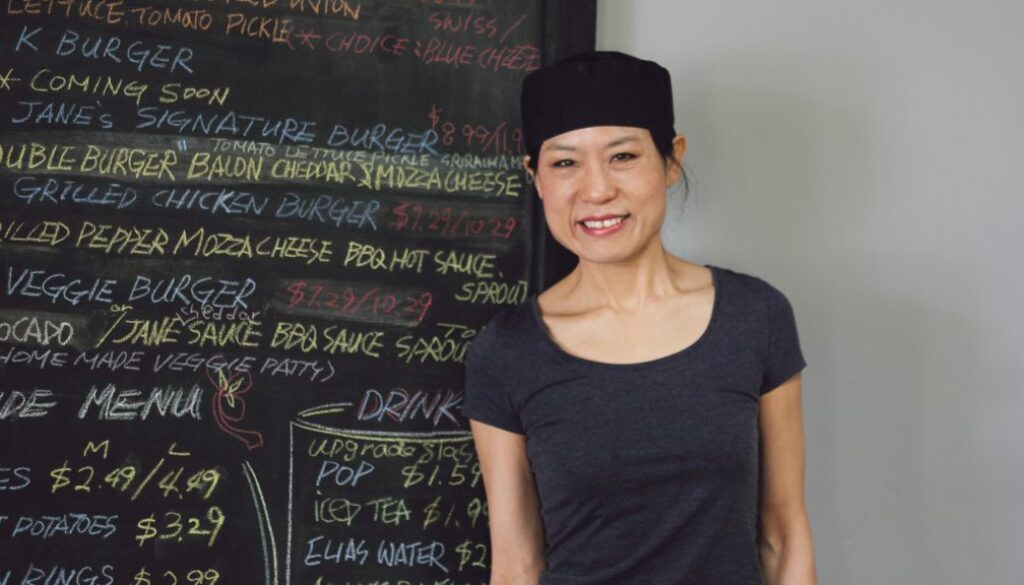 LETTUCE TOMATO PICKLE (* CHOICE: BLUE CHEESE
SWISS/
K BURGER
* COMING SOON
JANE'S SIGNATURE BURGER $8.99/11.9
" TOMATO LETTUCE PICKLE SRIRACHA
OUBLE BURGER BALON CHEDDAR & MOZZA CHEESE
GRILLED CHICKEN BURGER $7.29/10.29
ILLED PEPPER MOZZA CHEESE BBQ HOT SAUCE.
SPROUT
VEGGIE BURGER $7.29/10.29
or cheddar
OCADO /JANE SAUCE BBQ SAUCE SPROU TO
HOME MADE VEGGIE PATTY)
DE MENU
DRINK
M L
upgrade
ES $2.49/4.49
POP $1.59
ICED TEA $1.99
POTATOES $3.29
ELIAS WATER $2
RINGS $2.99